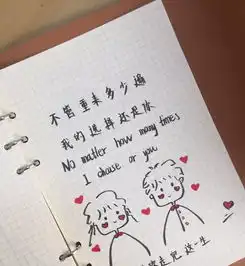 不管重来多少遍
我的选择还是你
No matter how many times
I chouse or you
走吧 这一生